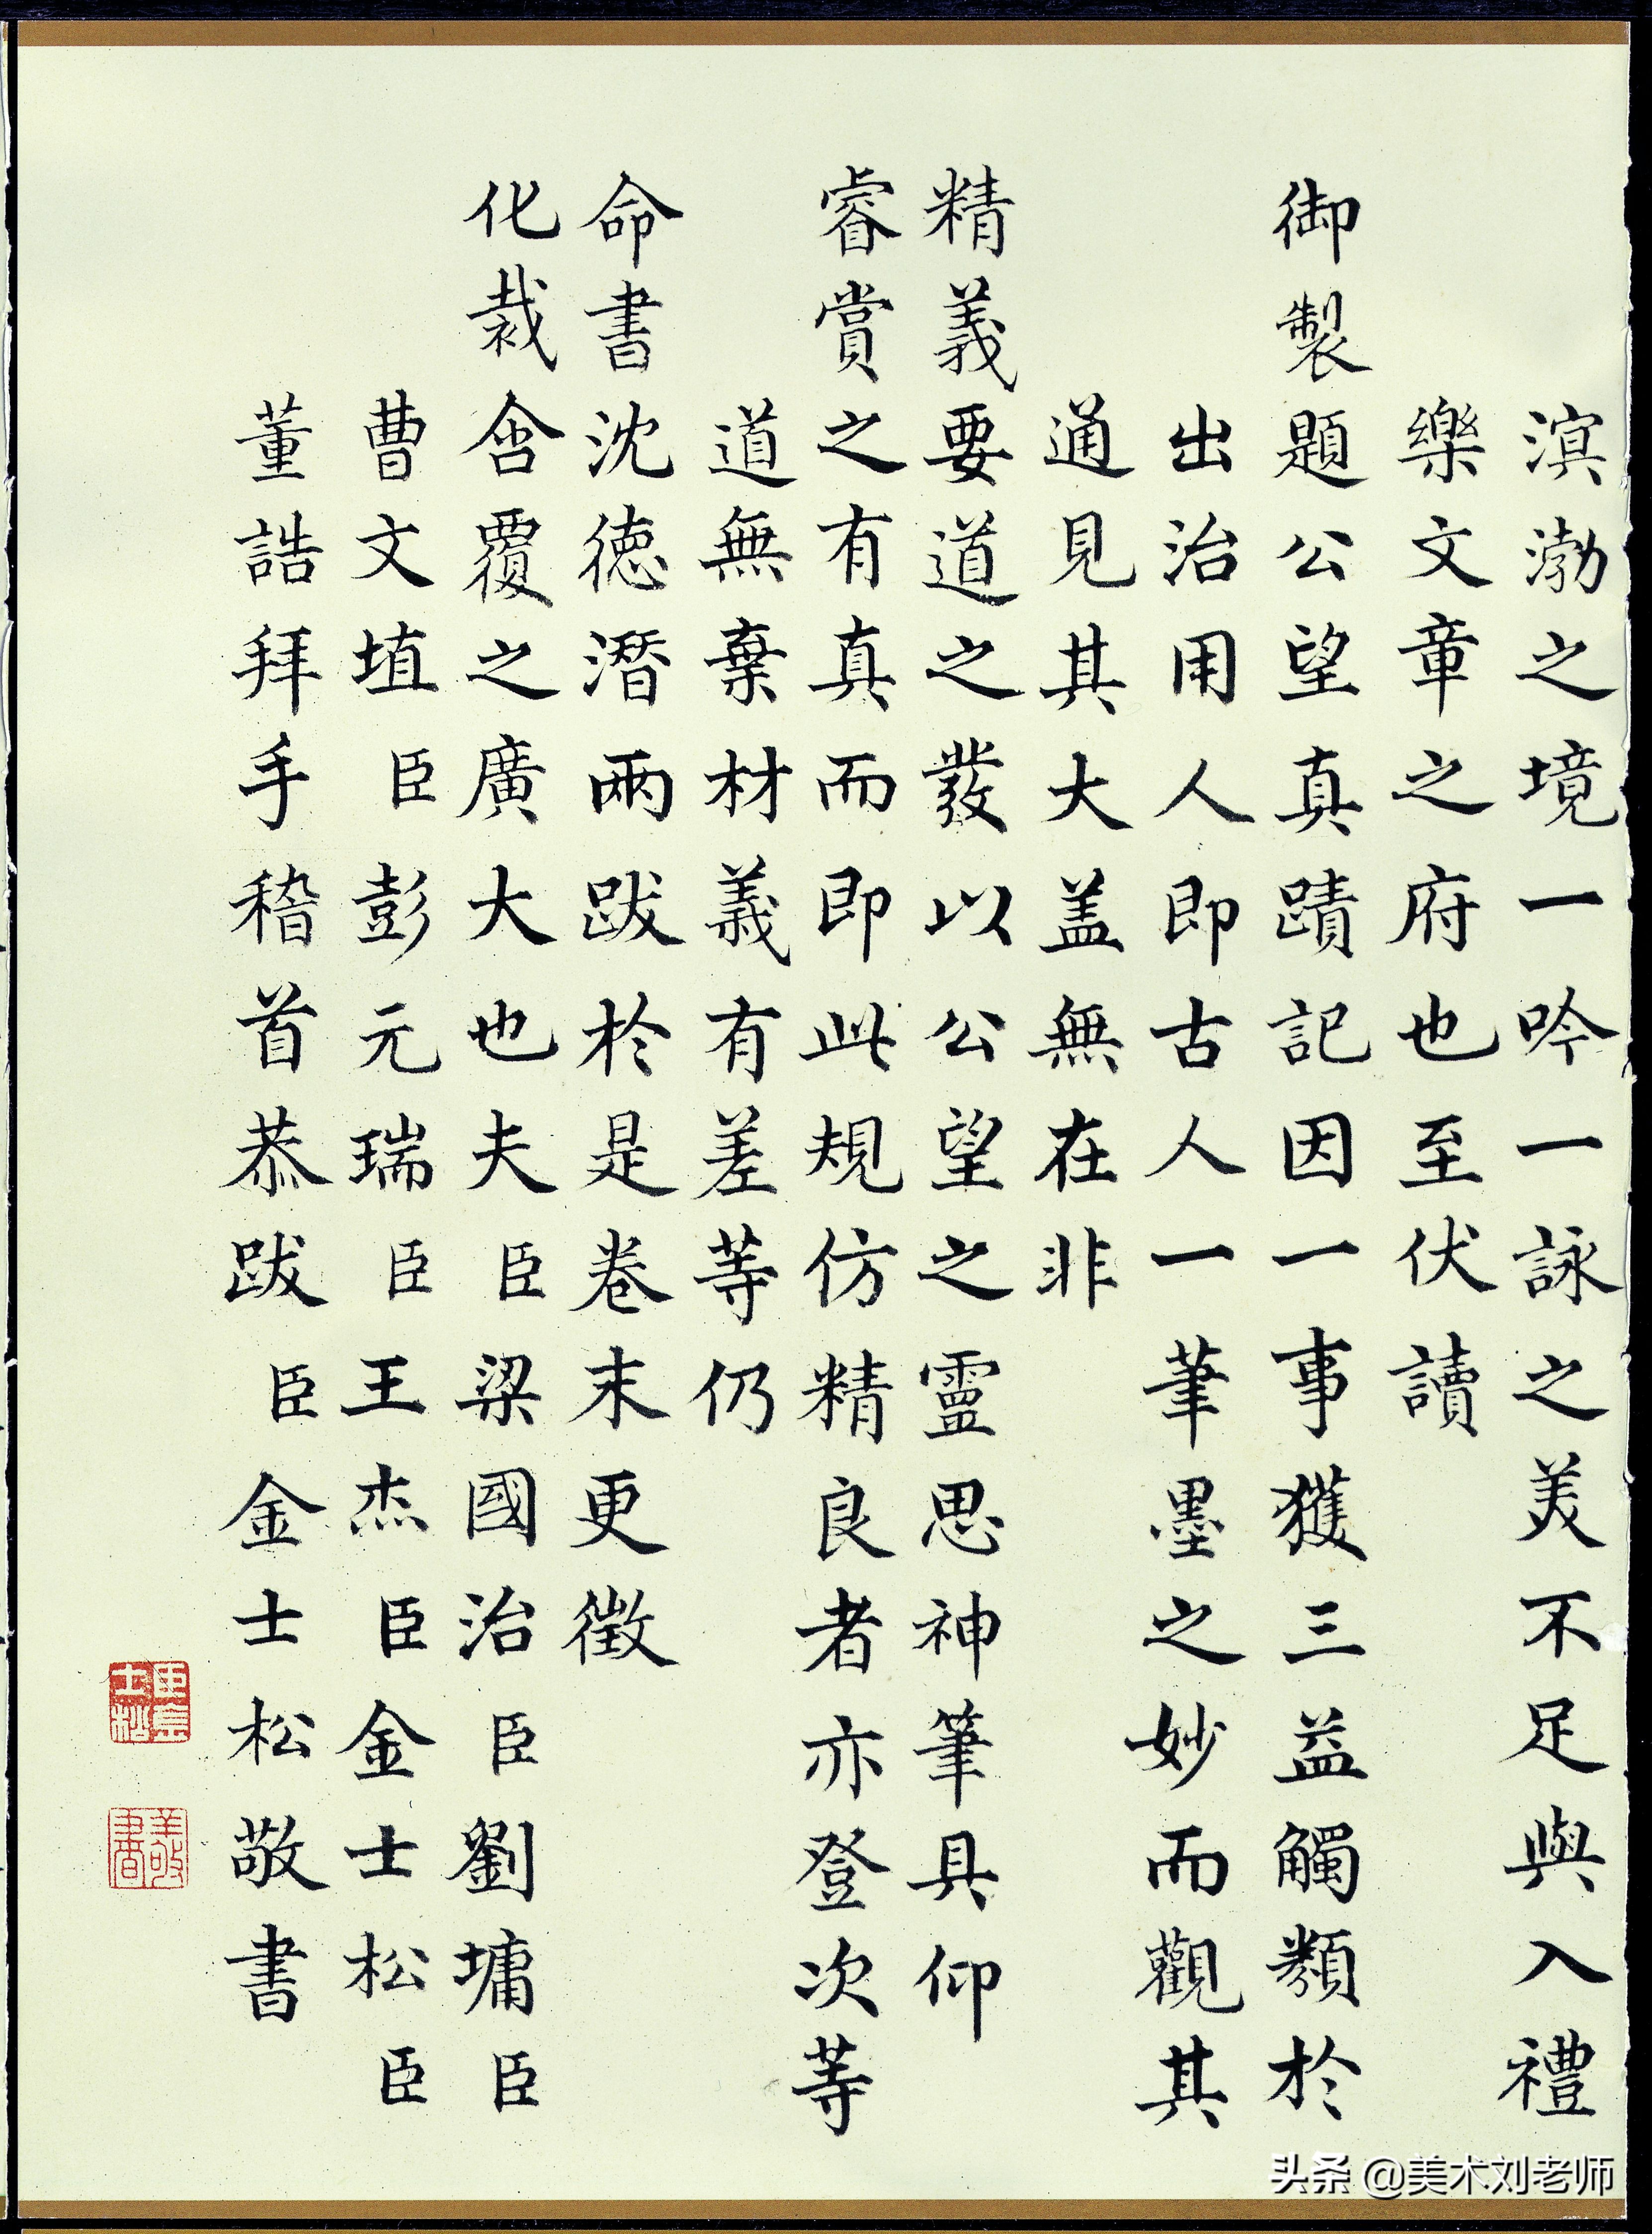 溟渤之境一吟一詠之美不足與入禮
樂文章之府也至伏讀
御製題公望真蹟記因一事獲三益觸類於
出治用人即古人一筆墨之妙而觀其
通見其大盖無在非
精義要道之發以公望之靈思神筆具仰
睿賞之有真而即此規仿精良者亦登次等
道無棄材義有差等仍
命書沈德潛兩跋於是卷末更徵
化裁含覆之廣大也夫臣梁國治臣劉墉臣
曹文埴臣彭元瑞臣王杰臣金士松臣
董誥拜手稽首恭跋臣金士松敬書
敬書
头条 @美术刘老师